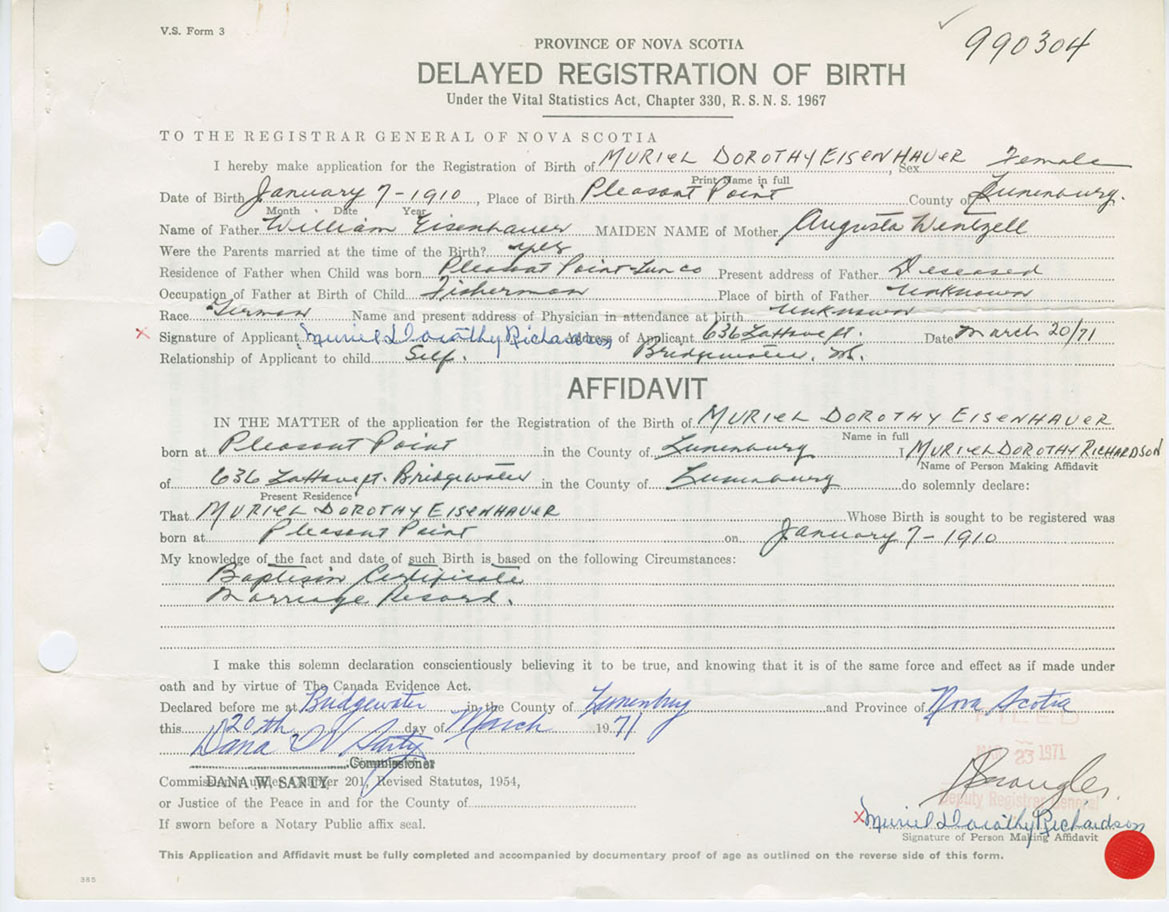 V.S. Form 3
990304
PROVINCE OF NOVA SCOTIA
DELAYED REGISTRATION OF BIRTH
Under the Vital Statistics Act, Chapter 330, R. S. N. S. 1967
TO THE REGISTRAR GENERAL OF NOVA SCOTIA
I hereby make application for the Registration of Birth of MURIEL DOROTHY EISENHAUER, Sex Female
Print Name in full
Date of Birth January 7-1910, Place of Birth Pleasant Point County of Lunenburg.
Month Date Year
Name of Father William Eisenhauer MAIDEN NAME of Mother Augusta Wentzell
Were the Parents married at the time of the Birth? yes
Residence of Father when Child was born Pleasant Point-Lun co Present address of Father Deseased
Occupation of Father at Birth of Child Fisherman Place of birth of Father Unknown
Race German Name and present address of Physician in attendance at birth Unknown
x Signature of Applicant Muriel Dorothy Richardson Address of Applicant 636 LaHave St. Date March 20/71
Relationship of Applicant to child Self. Bridgewater, NS.
AFFIDAVIT
IN THE MATTER of the application for the Registration of the Birth of MURIEL DOROTHY EISENHAUER
Name in full
born at Pleasant Point in the County of Lunenburg I, MURIEL DOROTHY RICHARDSON
Name of Person Making Affidavit
of 636 LaHave St. Bridgewater in the County of Lunenburg do solemnly declare:
Present Residence
That MURIEL DOROTHY EISENHAUER Whose Birth is sought to be registered was
born at Pleasant Point on January 7-1910
My knowledge of the fact and date of such Birth is based on the following Circumstances:
Baptism Certificate
Marriage Record.
I make this solemn declaration conscientiously believing it to be true, and knowing that it is of the same force and effect as if made under
oath and by virtue of The Canada Evidence Act.
Declared before me at Bridgewater in the County of Lunenburg and Province of Nova Scotia
this 20th day of March 1971
FILED
23 1971
Dana W Sarty
Commissioner
DANA W. SARTY
Commissioner under Chapter 201, Revised Statutes, 1954,
or Justice of the Peace in and for the County of
Deputy Registrar General
If sworn before a Notary Public affix seal.
x Muriel Dorothy Richardson
Signature of Person Making Affidavit
This Application and Affidavit must be fully completed and accompanied by documentary proof of age as outlined on the reverse side of this form.
385